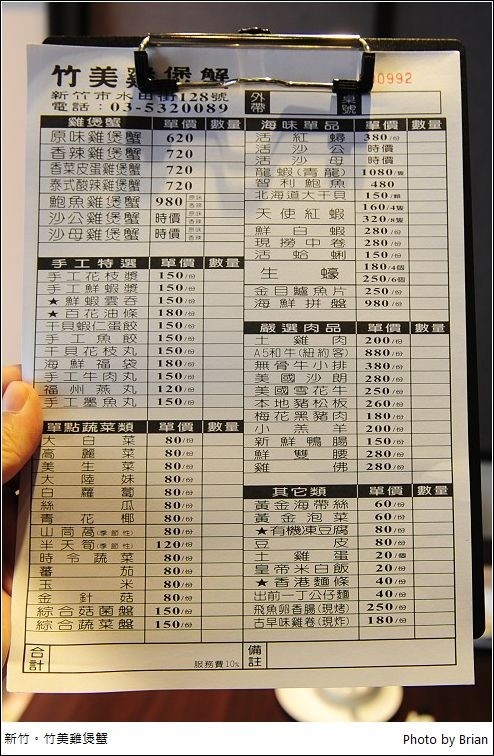 竹美雞煲蟹
新竹市水田街128號
電話：03-5320089
外帶
桌號
00992
雞煲蟹 單價 數量
原味雞煲蟹 620
香辣雞煲蟹 720
香菜皮蛋雞煲蟹 720
泰式酸辣雞煲蟹 720
鮑魚雞煲蟹 980 原味 香辣
沙公雞煲蟹 時價 原味 香辣
沙母雞煲蟹 時價 原味 香辣
手工特選 單價 數量
手工花枝漿 150/份
手工鮮蝦漿 150/份
★鮮蝦雲吞 150/份
★百花油條 180/份
干貝蝦仁蛋餃 150/份
手工魚餃 150/份
干貝花枝丸 150/份
海鮮福袋 180/份
手工牛肉丸 150/份
福州燕丸 120/份
手工墨魚丸 150/份
單點蔬菜類 單價 數量
大白菜 80/份
高麗菜 80/份
美生菜 80/份
大陸妹 80/份
白蘿蔔 80/份
絲瓜 80/份
青花椰 80/份
山茼萵(季節性) 80/份
半天筍(季節性) 120/份
時令蔬菜 80/份
蕃茄 80/份
玉米 80/份
金針菇 80/份
綜合菇菌盤 150/份
綜合蔬菜盤 150/份
合計
服務費10%
海味單品 單價 數量
活紅蟳 380/份
活沙公 時價
活沙母 時價
龍蝦(青龍) 1080/隻
智利鮑魚 480
北海道大干貝 150/顆
天使紅蝦 160/4隻
320/8隻
鮮白蝦 280/份
現撈中卷 280/份
活蛤蜊 150/份
生蠔 180/4個
250/6個
金目鱸魚片 250/份
海鮮拼盤 980/份
嚴選肉品 單價 數量
土雞肉 200/份
A5和牛(紐約客) 880/份
無骨牛小排 380/份
美國沙朗 280/份
美國雪花牛 250/份
本地豬松板 260/份
梅花黑豬肉 180/份
小羔羊 200/份
新鮮鴨腸 150/份
鮮雙腰 280/份
雞佛 280/份
其它類 單價 數量
黃金海帶絲 60/份
黃金泡菜 60/份
★有機凍豆腐 80/份
豆皮 80/份
土雞蛋 20/個
皇帝米白飯 20/份
★香港麵條 40/份
出前一丁公仔麵 40/份
飛魚卵香腸(現烤) 250/份
古早味雞卷(現炸) 180/份
備註
新竹。竹美雞煲蟹
Photo by Brian